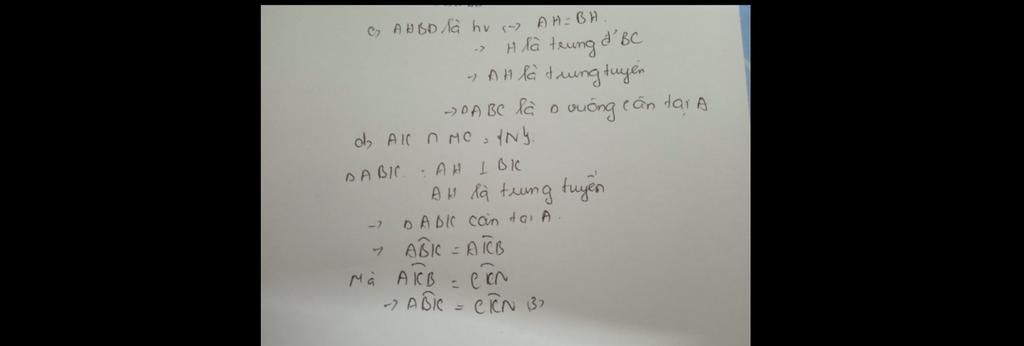 c, AHBD là hv <-> AH = BH.
-> H là trung đ' BC
-> AH là trung tuyến
-> ΔABC là Δ vuông cân tại A
d, AK ∩ MC = {N}.
ΔABK : AH ⊥ BK
AH là trung tuyến
-> ΔABK cân tại A.
-> ABK̂ = AKB̂
Mà AKB̂ = CKN̂
-> ABK̂ = CKN̂ (3)